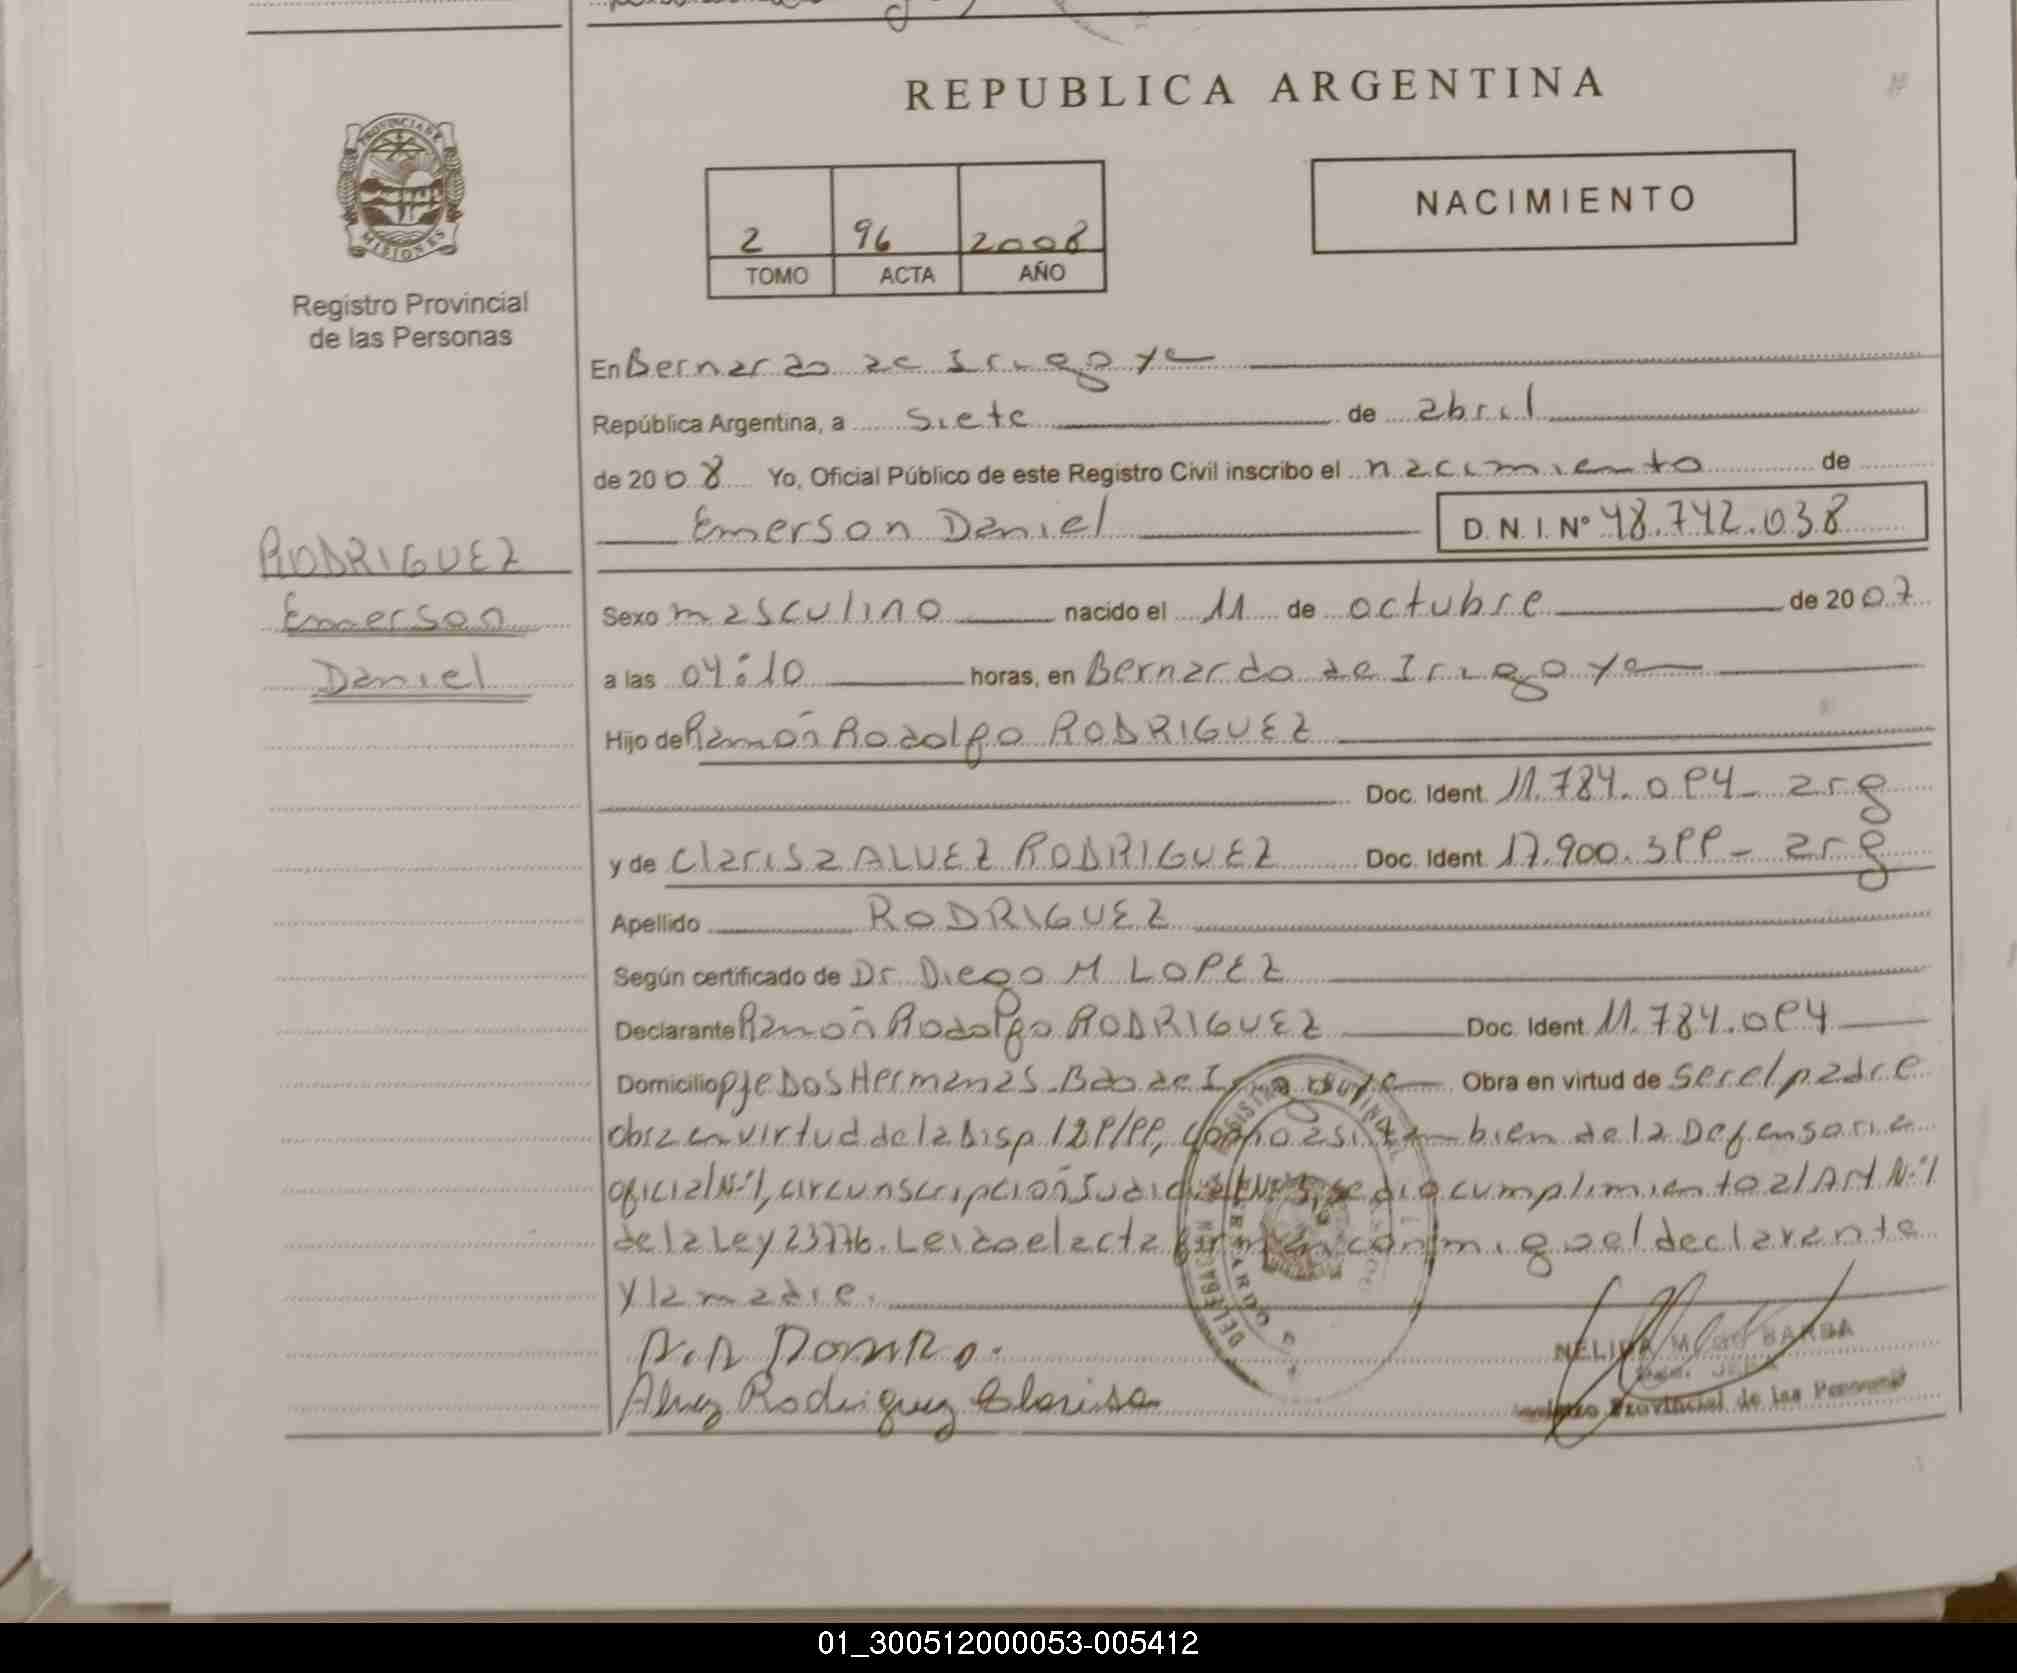 REPUBLICA ARGENTINA
PROVINCIA DE
MISIONES
Registro Provincial
de las Personas
NACIMIENTO
2 96 2008
TOMO ACTA AÑO
En Bernardo de Irigoye
República Argentina, a siete de abril
de 2008 Yo, Oficial Público de este Registro Civil inscribo el nacimiento de
Emerson Daniel D.N.I. Nº 48.742.038
RODRIGUEZ
Emerson
Daniel
Sexo masculino nacido el 11 de octubre de 2007
a las 04:10 horas, en Bernardo de Irigoye
Hijo de Ramón Rodolfo RODRIGUEZ
Doc. Ident. 11.784.094- arg
y de Clarisa ALVEZ RODRIGUEZ Doc. Ident. 17.900.399- arg
Apellido RODRIGUEZ
Según certificado de Dr. Diego M LOPEZ
Declarante Ramón Rodolfo RODRIGUEZ Doc. Ident. 11.784.094
Domicilio Pje Dos Hermanas-Bdo de Obra en virtud de ser el padre
obra en virtud de la Disp 129/99, como asi tambien de la Defensoria
oficial Nº1, circunscripción se dio cumplimiento al Art Nº1
de la Ley 23776. Leida el acta firman conmigo el declarante
y la madre.
Alvez Rodriguez Clarisa
NELIDA BARBA
Provincial de las Personas
01_300512000053-005412